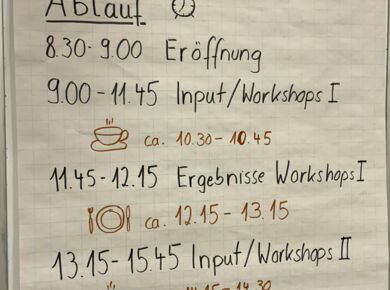 Ablauf
8.30-9.00 Eröffnung
9.00-11.45 Input/Workshops I
ca. 10.30-10.45
11.45-12.15 Ergebnisse Workshops I
ca. 12.15-13.15
13.15-15.45 Input/Workshops II
14.30